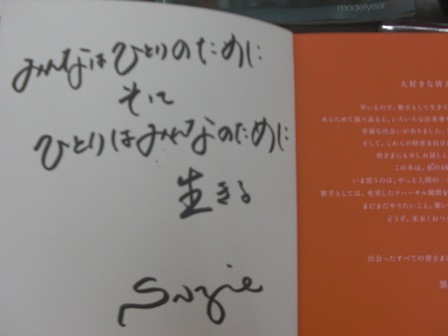 modelyear
みんなはひとりのために
そして
ひとりはみんなのために
生きる
Suzie
大好きな皆さ
早いもので、歌手として生きて
あらため振り返ると、いろいろな出来事
幸福な出会いがありました。
そして、これらの財産を自分
皆さまにも少しお話し
この本は、私の40
いま思うのは、やっと人間の一
歌手としては、充実したリハーサル期間を
まだまだやりたいこと、歌い
どうぞ、末永くおつ
出会ったすべての皆さまに